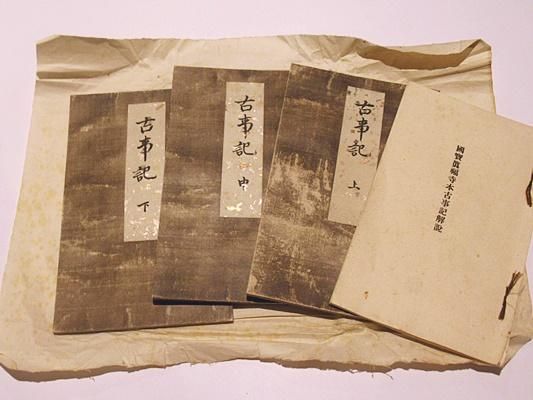 古事記 上
古事記 中
古事記 下
國寶眞福寺本古事記解說